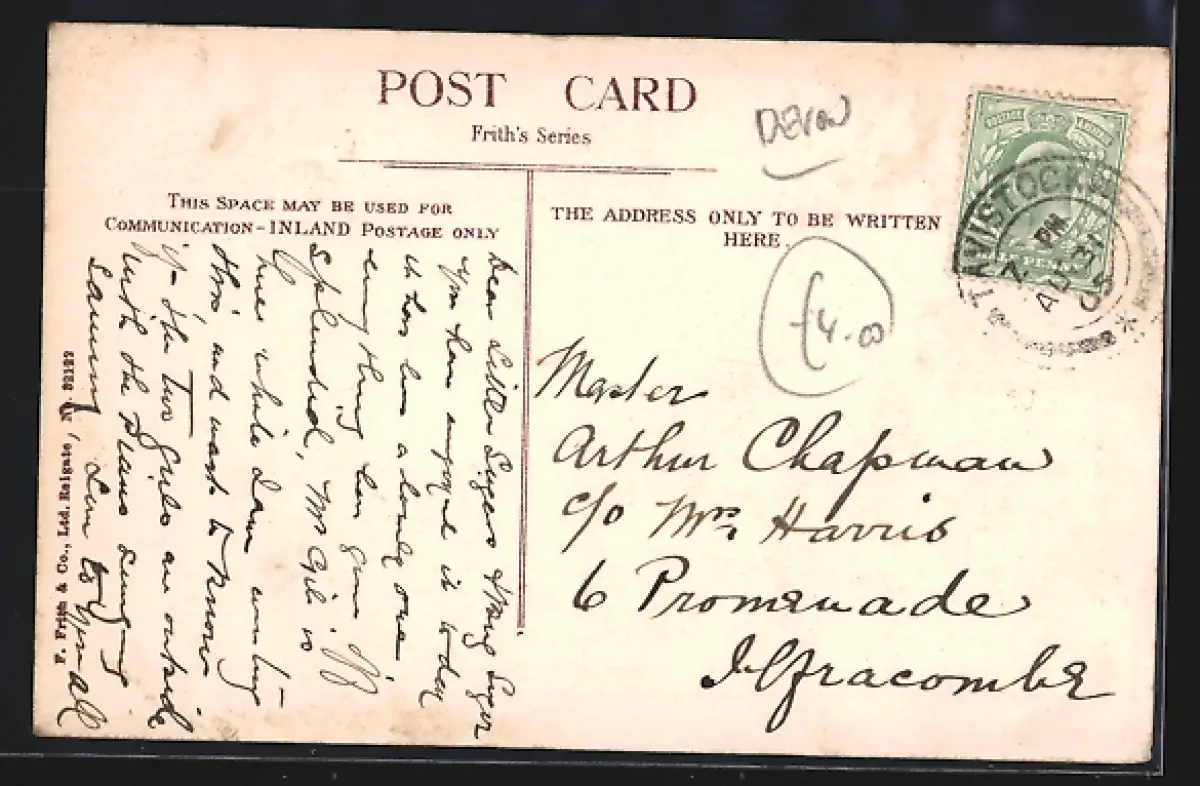 POST CARD
Frith's Series
DEVON
THIS SPACE MAY BE USED FOR
COMMUNICATION-INLAND POSTAGE ONLY
THE ADDRESS ONLY TO BE WRITTEN
HERE.
TAVISTOCK
PM
AU 31
HALF PENNY
£4.00
Master
Arthur Chapman
c/o Mrs Harris
6 Promenade
Ilfracombe
Dear Little
you have enjoyed it today
it has been a lovely one
everything has gone off
splendid, Mr Gill is
here while I am writing
this, and want to know
if the two girls are outside
with the Blains singing
Love to you all
F. Frith & Co., Ltd. Reigate, No. 52122